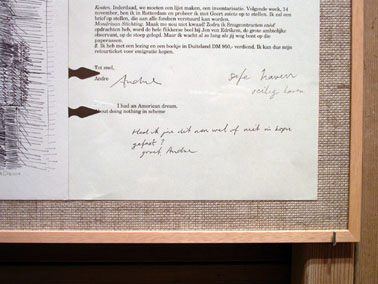 Kosten. Inderdaad, we moeten een lijst maken, een inventarisatie. Volgende week, 14
november, ben ik in Rotterdam en probeer ik met Geert op te stellen. Ik zal een
brief op stellen, die aan alle fondsen verstuurd kan worden.
Mondriaan Stichting. Maak me nou niet kwaad! Zodra ik
opdrachten heb, word de hele bij Jon van Edriksen, de grote ambtelijke
observant, op de stoep gelegd. Maar ik wacht al zo lang als jij nog bent op die
paperassen.
8. Ik heb met een lezing en een boekje in Duitsland DM 950,- verdiend. Ik kan dus mijn
retourticket voor emigratie kopen.
Tot snel,
Andre
Andre
safe haven
veilig haven
I had an American dream.
about doing nothing in scheme
Had ik jou dit nou wel of niet in kopie
gefaxt?
groet, Andre